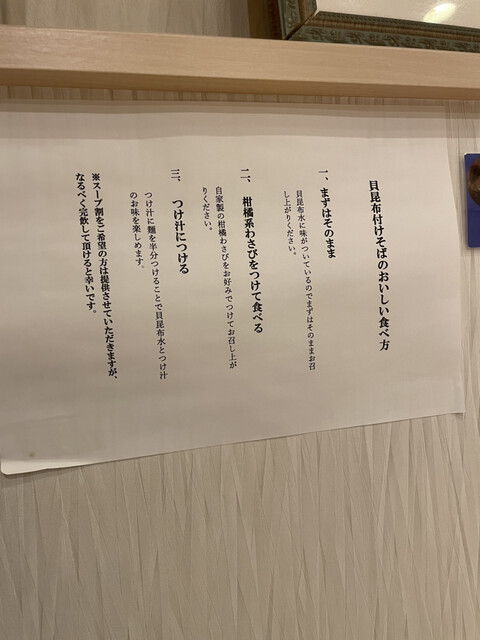 貝昆布付けそばのおいしい食べ方
一、まずはそのまま
貝昆布水に味がついているのでまずはそのままお召
し上がりください。
二、柑橘系わさびをつけて食べる
自家製の柑橘わさびをお好みでつけてお召し上が
りください。
三、つけ汁につける
つけ汁に麺を半分つけることで貝昆布水とつけ汁
のお味を楽しめます。
※スープ割をご希望の方は提供させていただきますが、
なるべく完飲して頂けると幸いです。